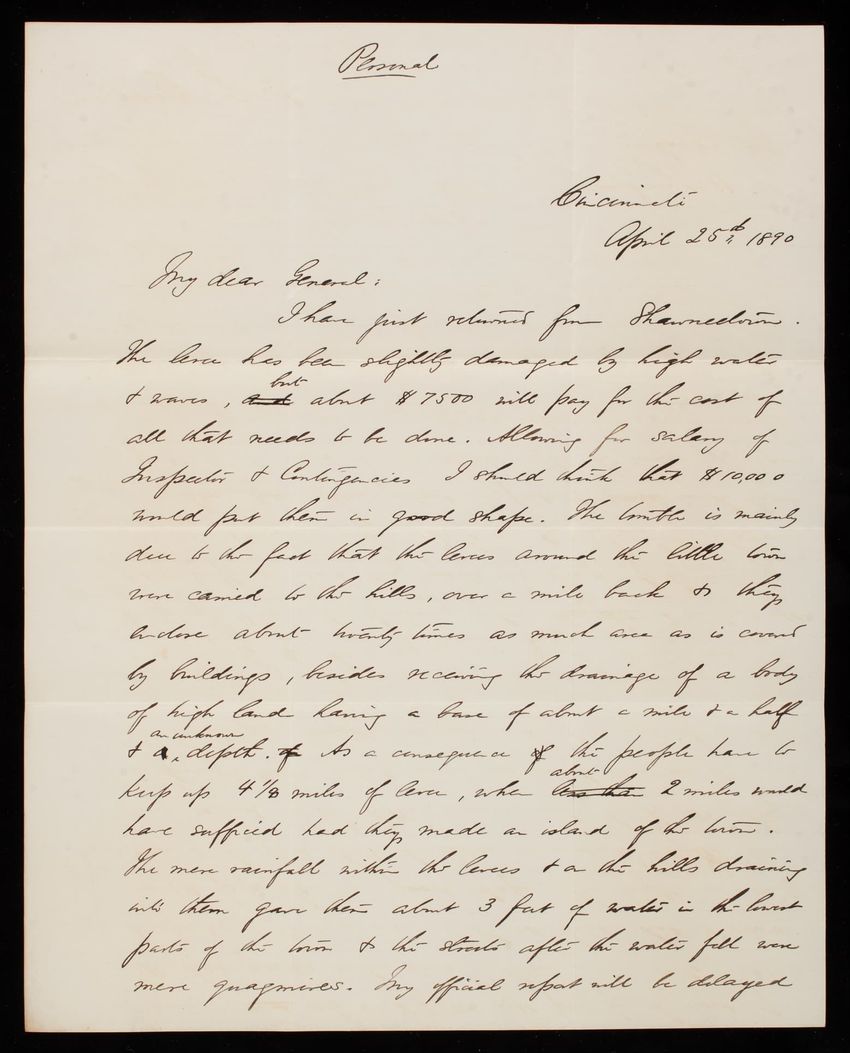 Personal
Cincinnati
April 25th, 1890
My dear General:
I have just returned from Shawneetown.
The levee has been slightly damaged by high water
& waves, and but about $7500 will pay for the cost of
all that needs to be done. Allowing for salary of
Inspector & Contingencies I should think that $10,000
would put them in good shape. The trouble is mainly
due to the fact that the levees around the little town
were carried to the hills, over a mile back & they
enclose about twenty times as much area as is covered
by buildings, besides receiving the drainage of a body
of high land having a base of about a mile & a half
& an unknown depth. As a consequence the people have to
keep up 4 1/8 miles of levee, when less than about 2 miles would
have sufficed had they made an island of the town.
The mere rainfall within the levees & on the hills draining
into them gave them about 3 feet of water in the lowest
parts of the town & the streets after the water fell were
mere quagmires. My official report will be delayed